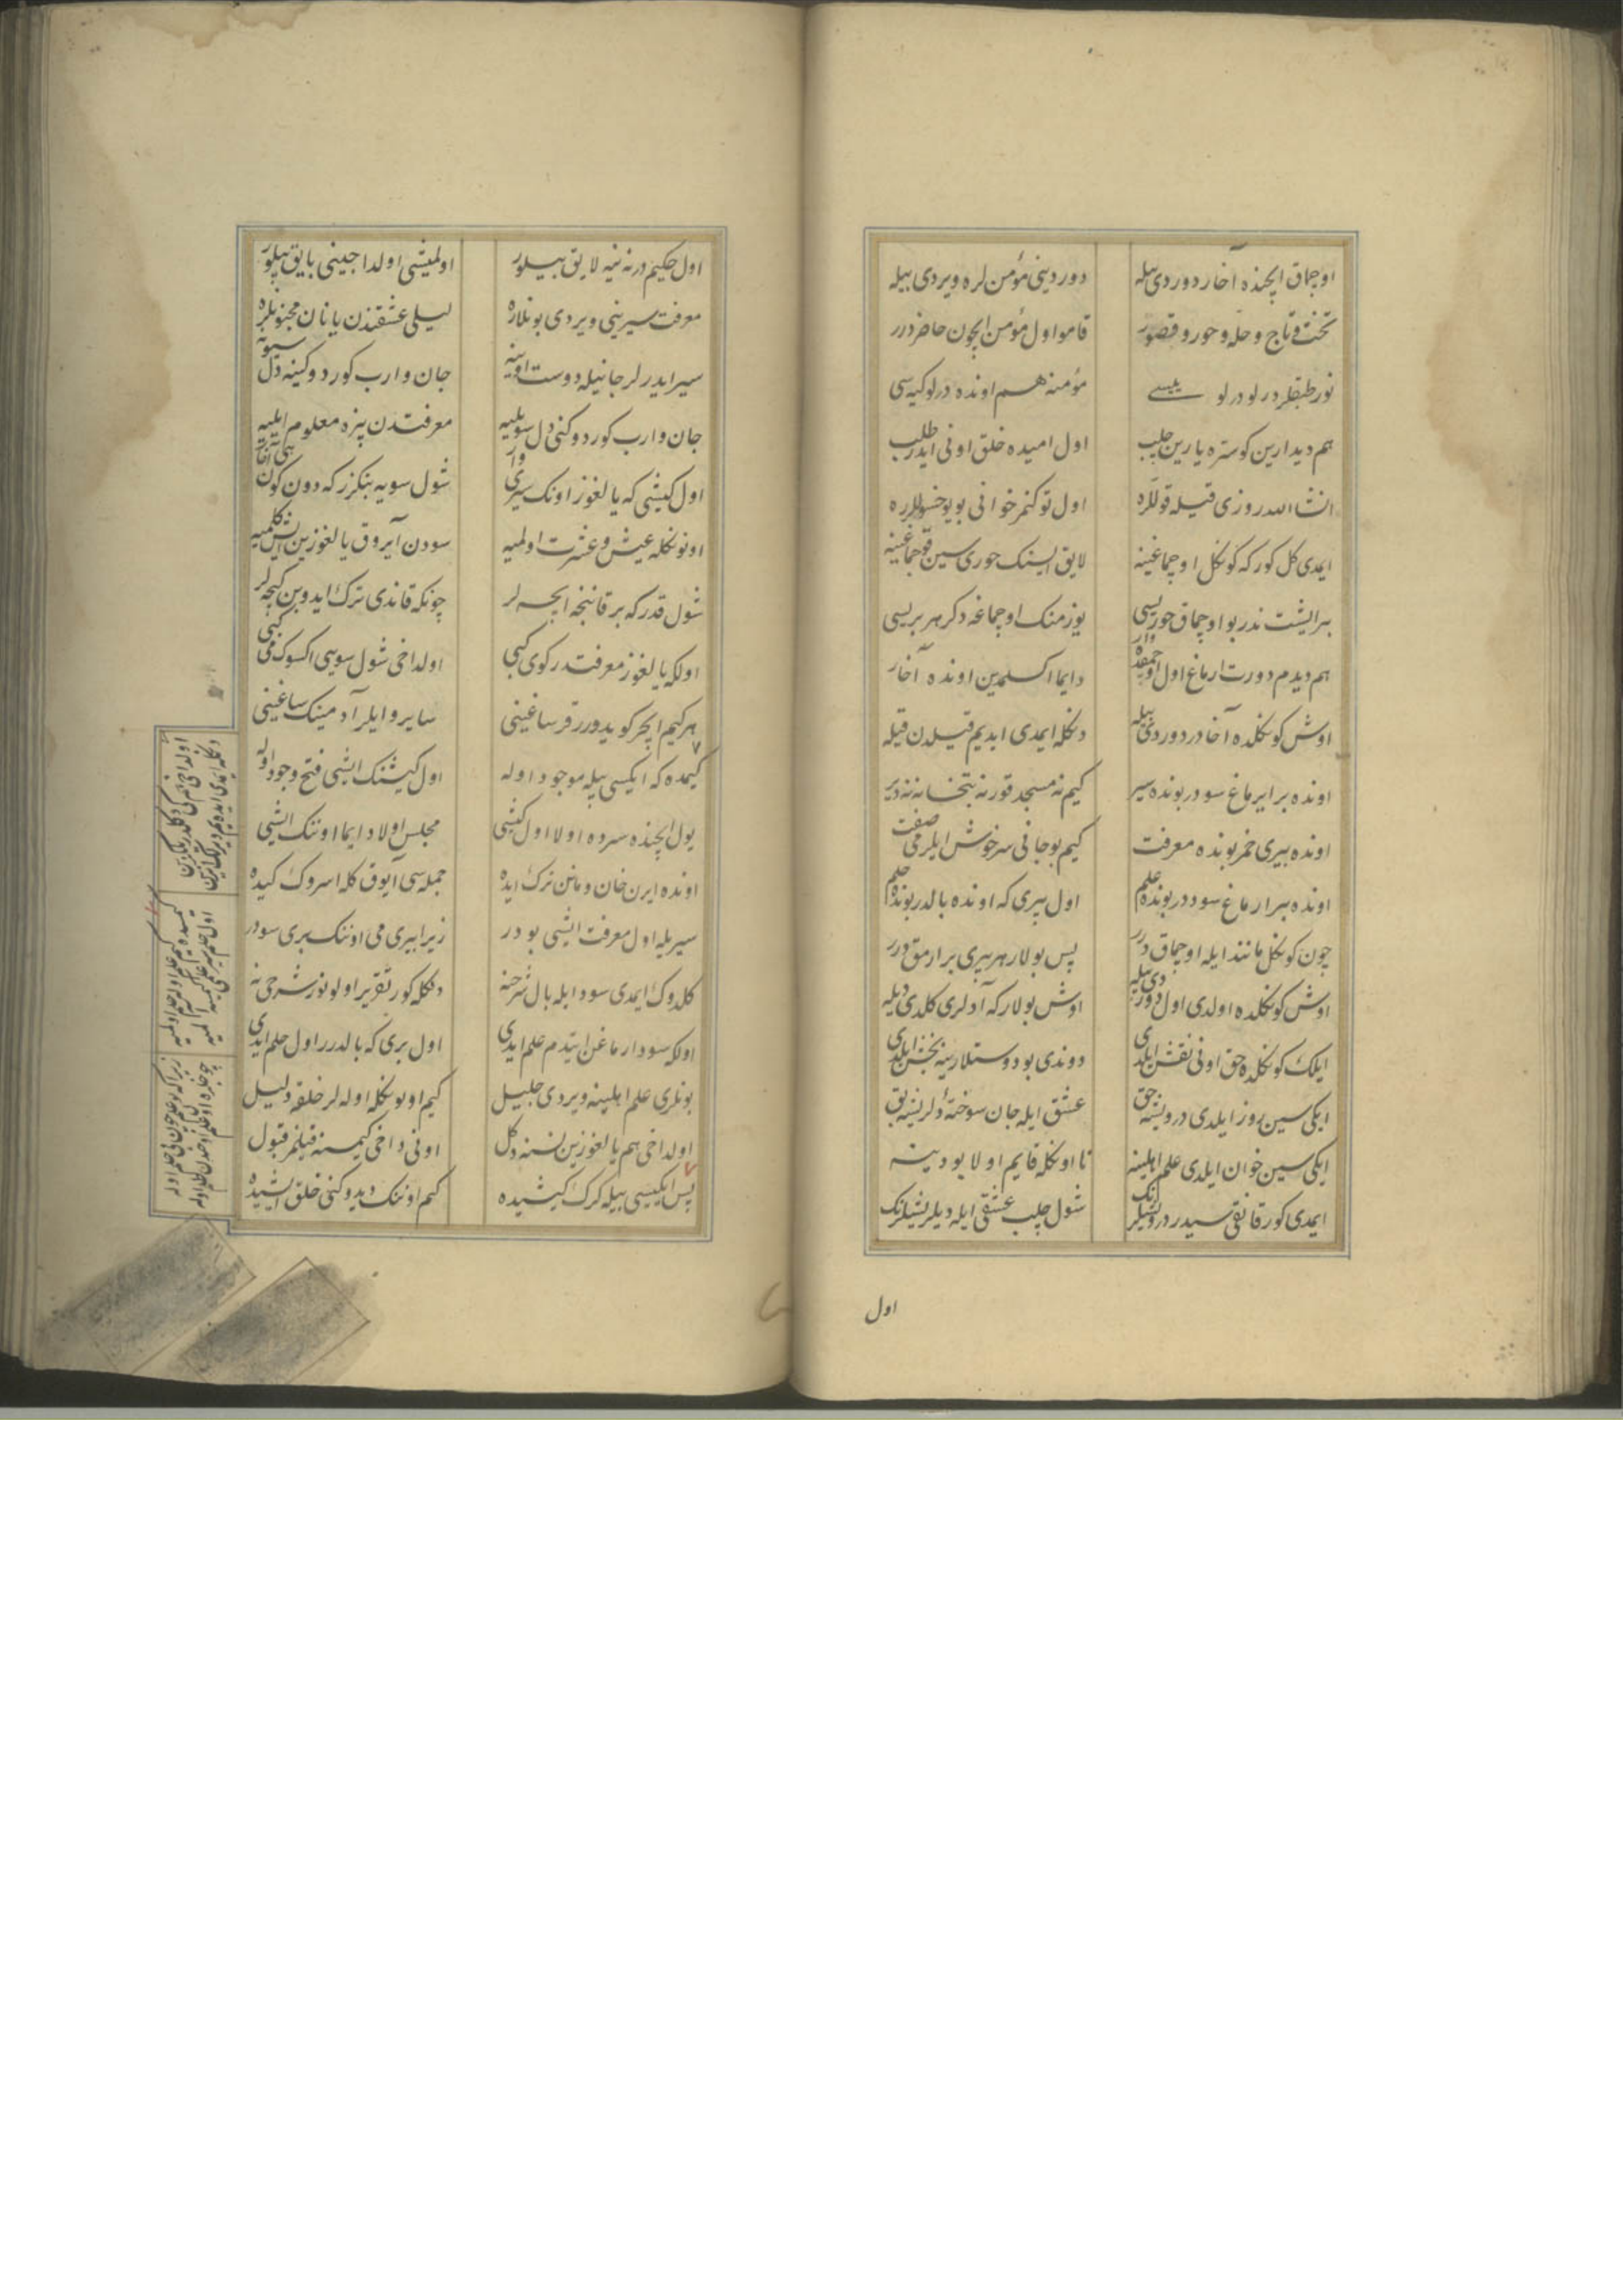 اوچماق ایچنده آخار دوردی بیله دوردینی مؤمن لره ویردی بیله
تخت و تاج و حله و حور و قصور قامو اول مؤمن ایچون حاضردرر
نور طبقلر درلو درلو یمیسی مؤمنه هم اونده درلو کیه سی
هم دیدارین کوستره یارین چلب اول امیده خلق اونی ایدر طلب
انشاالله روزی قیله قوللره اول توکنمز خوانی بو یوخسوللره
ایمدی کل کور که کوکل اوچماغینه لایق ایسنک حوری سین قوچماغینه
بر ایشت ندر بو اوچماق حوریسی یوز منک اوچماغه دکر هر بریسی
هم دیدم دورت ارماغ اول اوچمقده وار دایما اکسلمین اونده آخار
اوش کوکلده آخادر دوردی بیله دکله ایمدی ایدیم قیلدن قیله
اونده بر ایرماغ سودر بونده سیر کیم نه مسجد قور نه بتخانه نه دیر
اونده بیری خمر بونده معرفت کیم بو جانی سرخوش ایلر می صفت
اونده بر ارماغ سوددر بونده علم اول بیری که اونده بالدر بونده حلم
چون کوکل مانند ایله اوچماق درر پس بولار هر بیری بر ارمق درر
اوش کوکلده اولدی اول دوردی بیله اوش بولار که آدلری کلدی دیله
ایلک کوکلده حق اونی نقش ایلدی دوندی بو دوستلارینه بخش ایلدی
ایکی سین روز ایلدی درویشه حق عشق ایله جان سوخته دلریشه بق
ایکی سین خوان ایلدی علم اهلینه تا اونکله قایم اولا بو دینه
ایمدی کور قانقی سیدر درویشلرنک شول چلب عشقی ایله دلریشلرنک
اول
اول حکیمدر نه نیه لایق بیلور اولمیشی اولداجینی بایق بیلور
معرفت سیرینی ویردی بونلاره لیلی عشقندن یانان مجنونلره
سیر ایدرلر جانیله دوست اوینه جان وارب کوردوکینه دل سوینه
جان وارب کوردوکنی دل سویلیه معرفتدن بیزه معلوم ایلیه
اول کیشی که یالغوز اونک سیری وار شول سویه بنکزر که دون کون آخار
اونونکله عیش و عشرت اولمیه سودن آیروق یالغوزین ایش کلمیه
شول قدر که بر قانیخه ایچه لر چونکه قاندی ترک ایدوبن کیچه لر
اولکه یالغوز معرفتدر کوی کبی اولداخی شول سوسی اکسوک می کبی
هر کیم ایچر کویدورر قرساغینی سایرو ایلر آدمینک ساغینی
کیمده که ایکسی بیله موجود اوله اول کیشنک ایشی فتح وجود اوله
یول ایچنده سروه اولا اول کیشی مجلس اولا دایما اوننک ایشی
اونده ایرن خان و مانن ترک ایده جمله سی آیوق کله اسروک کیده
سیر یله اول معرفت ایشی بودر زیرا بیری می اوننک بری سودر
کلدوک ایمدی سود ایله بال شرحنه دکله کور تقریر اولونور شرحی نه
اولکه سود ارماغن ایتدم علم ایدی اول بری که بالدرر اول حلم ایدی
بونلری علم اهلینه ویردی جلیل کیم اونونکله اوله لر خلقه دلیل
اولداخی هم یالغوزین نسنه دکل اونی داخی کیمسنه قیلنمز قبول
پس ایکیسی بیله کرک کیشیده کیم اوننک دیدوکنی خلق ایشیده